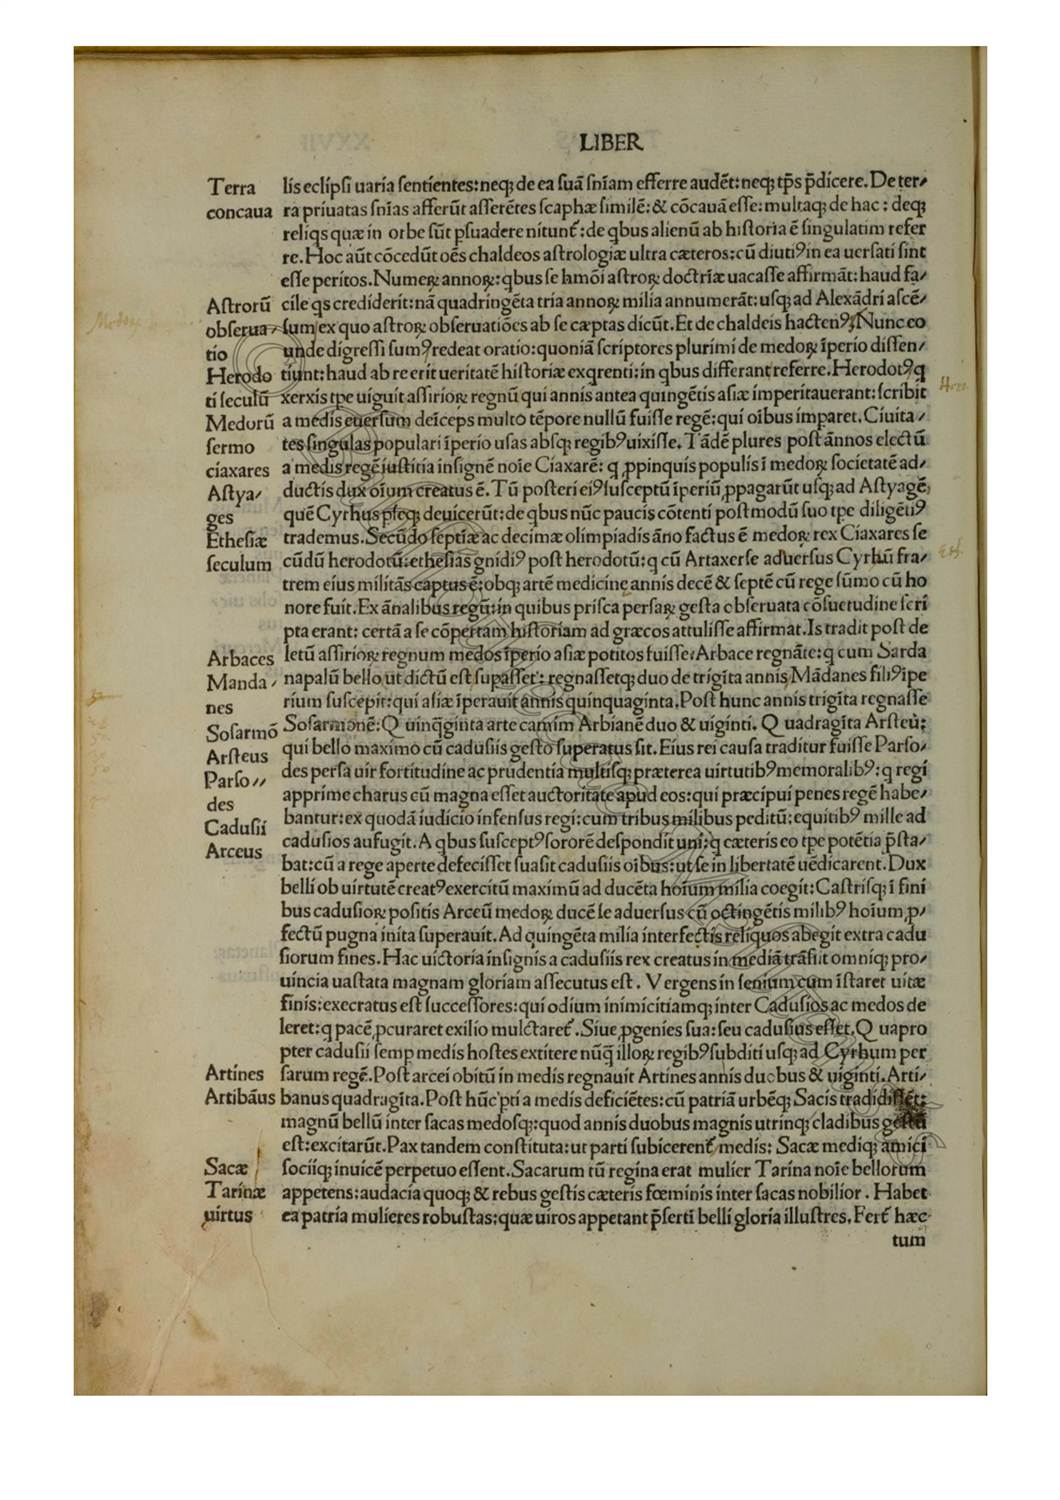 LIBER
Terra
concaua
Astrorū
obserua-
tio
Herodo
ti seculū
Medorū
sermo
ciaxares
Astya/
ges
Ethesiæ
seculum
Arbaces
Manda/
nes
Sosarmō
Arsteus
Parso//
des
Cadusii
Arceus
Artines
Artibāus
Sacæ
Tarinæ
uirtus
lis eclipsi uaria sentientes:neqꝫ de ea suā sn̄iam efferre audēt:neqꝫ tp̄s p̄dicere.De ter/
ra priuatas sn̄ias afferūt asserētes scaphæ similē:& cōcauā esse:multaqꝫ de hac : deqꝫ
reliqs quæ in orbe sūt ꝑsuadere nitunt᷑:de qbus alienū ab historia ē singulatim refer
re.Hoc aūt cōcedūt oēs chaldeos astrologiæ ultra cæteros:cū diutiꝰ in ea uersati sint
esse peritos.Numeꝝ annoꝝ:qbus se hmōi astroꝝ doctrīæ uacasse affirmāt:haud fa/
cile qs crediderit:nā quadringēta tria annoꝝ milia annumerāt:usqꝫ ad Alexādri ascē/
sum ex quo astroꝝ obseruatiōes ab se cæptas dicūt.Et de chaldeis hactenꝰ.Nunc eo
unde digressi sumꝰ redeat oratio:quoniā scriptores plurimi de medoꝝ īperio dissen/
tiunt:haud ab re erit ueritatē historiæ exqrenti:in qbus differant referre.Herodotꝰ q
xerxis tpe uiguit assirioꝝ regnū qui annis antea quingētis asiæ imperitauerant:scribit
a medis euersum deinceps multo tēpore nullū fuisse regē:qui oībus imparet.Ciuita/
tes singulas populari īperio usas absqꝫ regibꝰ uixisse.Tādē plures post annos electū
a medis regē justitia insignē noīe Ciaxarē: q ꝓpinquis populis ī medoꝝ societatē ad/
ductis dux oīum creatus ē.Tū posteri eiꝰ susceptū īperiū ꝓpagarūt usqꝫ ad Astyagē:
quē Cyrhus pseqꝫ deuicerūt:de qbus nūc paucis cōtenti post modū suo tpe diligētiꝰ
trademus.Secūdo septiæ ac decimæ olimpiadis āno factus ē medoꝝ rex Ciaxares se
cūdū herodotū:ethesias gnidiꝰ post herodotū:q cū Artaxerse aduersus Cyrhū fra/
trem eius militās captus ē:obqꝫ artē medicine annis decē & septē cū rege sūmo cū ho
nore fuit.Ex ānalibus regū:in quibus prisca persaꝝ gesta obseruata cōsuetudine scri
pta erant: certā a se cōpertam historiam ad græcos attulisse affirmat.Is tradit post de
letū assirioꝝ regnum medos īperio asiæ potitos fuisse:Arbace regnāte:q cum Sarda
napalū bello ut dictū est supasset: regnassetqꝫ duo de trigīta annis Mādanes filiꝰ īpe
rium suscepit:qui asiæ īperauit annis quinquaginta.Post hunc annis trigīta regnasse
Sosarmonē:Q uinqgīnta arte camim Arbianē duo & uiginti. Q uadragīta Arsteū:
qui bello maximo cū cadusiis gesto superatus sit.Eius rei causa traditur fuisse Parso/
des persa uir fortitudine ac prudentia multisqꝫ præterea uirtutibꝰ memoralibꝰ:q regi
apprime charus cū magna esset auctoritate apud eos:qui præcipui penes regē habe/
bantur:ex quodā iudicio infensus regi:cum tribus milibus peditū:equitibꝰ mille ad
cadusios aufugit.A qbus susceptꝰ sororē despondit uni:q cæteris eo tpe potētia p̄sta/
bat:cū a rege aperte defecisset suasit cadusiis oībus:ut se in libertatē uēdicarent.Dux
belli ob uirtutē creatꝰ exercitū maximū ad ducēta hoīum milia coegit:Castrisqꝫ ī fini
bus cadusioꝝ positis Arceū medoꝝ ducē se aduersus cū octingētis milibꝰ hoīum ꝓ/
fectū pugna inita superauit.Ad quingēta milia interfectis reliquos abegit extra cadu
siorum fines.Hac uictoria insignis a cadusiis rex creatus in mediā trāsiit omniqꝫ pro/
uincia uastata magnam gloriam assecutus est . Vergens in senium cum īstaret uitæ
finis:execratus est successores:qui odium inimicitiamqꝫ inter Cadusios ac medos de
leret:q pacē ꝓcuraret exilio mulctaret᷑.Siue ꝓgenies sua:seu cadusius esset.Q uapro
pter cadusii semp medis hostes extitere nūq̄ illoꝝ regibꝰ subditi usqꝫ ad Cyrhum per
sarum regē.Post arcei obitū in medis regnauit Artines annis duobus & uiginti.Arti/
banus quadragīta.Post hūc pti a medis deficiētes:cū patriā urbēqꝫ Sacis tradidissēt:
magnū bellū inter sacas medosqꝫ:quod annis duobus magnis utrinqꝫ cladibus gestū
est:excitarūt.Pax tandem constituta:ut parti subicerent᷑ medis: Sacæ mediqꝫ amici
sociiqꝫ inuicē perpetuo essent.Sacarum tū regina erat mulier Tarina noīe bellorum
appetens:audacia quoqꝫ & rebus gestis cæteris fœminis inter sacas nobilior . Habet
ea patria mulieres robustas:quæ uiros appetant p̄serti belli gloria illustres.Fert᷑ hæc
tum